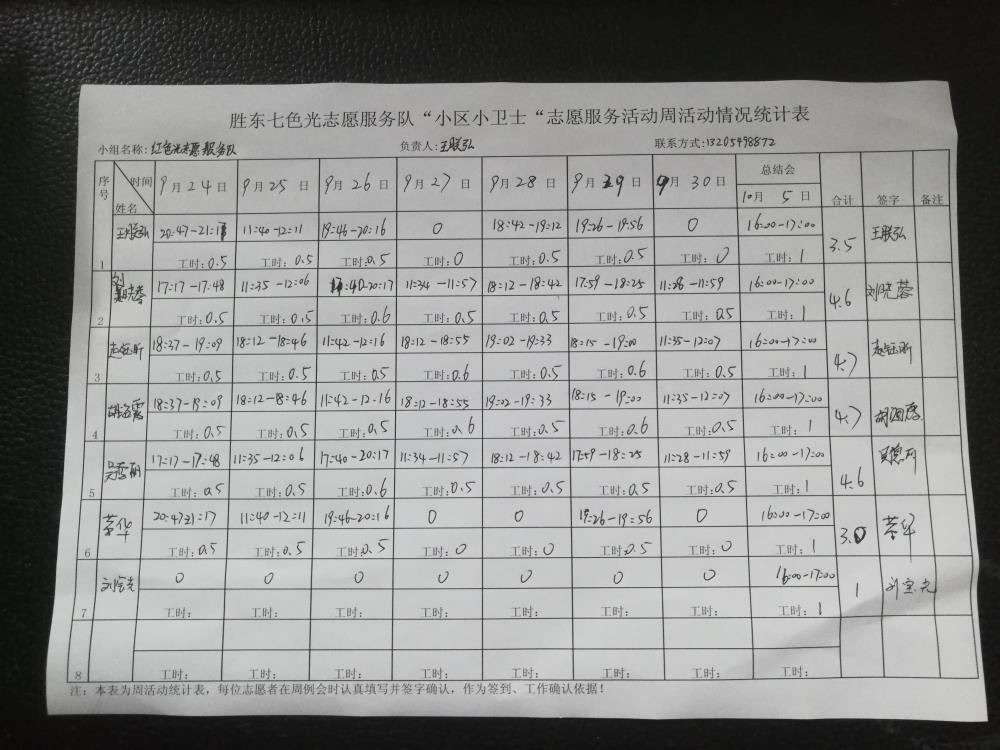 胜东七色光志愿服务队“小区小卫士“志愿服务活动周活动情况统计表
小组名称：红色光志愿服务队 负责人：王朕弘 联系方式：13205498872
序号 时间 姓名 9月24日 9月25日 9月26日 9月27日 9月28日 9月29日 9月30日 总结会 10月5日 合计 签字 备注
王朕弘 20:47-21:17 11:40-12:11 19:46-20:16 0 18:42-19:12 19:26-19:56 0 16:00-17:00 3.5 王朕弘
1 工时：0.5 工时：0.5 工时：0.5 工时：0 工时：0.5 工时：0.5 工时：0 工时：1
刘晓蓉 17:17-17:48 11:35-12:06 17:40-20:17 11:34-11:57 18:12-18:42 17:59-18:25 11:28-11:59 16:00-17:00 4.6 刘晓蓉
2 工时：0.5 工时：0.5 工时：0.6 工时：0.5 工时：0.5 工时：0.5 工时：0.5 工时：1
18:37-19:09 18:12-18:46 11:42-12:16 18:12-18:55 19:02-19:33 18:15-19:00 11:35-12:07 16:00-17:00 4.7
3 工时：0.5 工时：0.5 工时：0.5 工时：0.6 工时：0.5 工时：0.6 工时：0.5 工时：1
18:37-19:09 18:12-18:46 11:42-12:16 18:12-18:55 19:02-19:33 18:15-19:00 11:35-12:07 16:00-17:00 4.7
4 工时：0.5 工时：0.5 工时：0.5 工时：0.6 工时：0.5 工时：0.6 工时：0.5 工时：1
17:17-17:48 11:35-12:06 17:40-20:17 11:34-11:57 18:12-18:42 17:59-18:25 11:28-11:59 16:00-17:00 4.6
5 工时：0.5 工时：0.5 工时：0.6 工时：0.5 工时：0.5 工时：0.5 工时：0.5 工时：1
20:47-21:17 11:40-12:11 19:46-20:16 0 0 19:26-19:56 0 16:00-17:00 3.0
6 工时：0.5 工时：0.5 工时：0.5 工时：0 工时：0 工时：0.5 工时：0 工时：1
刘宝光 0 0 0 0 0 0 0 16:00-17:00 1 刘宝光
7 工时： 工时： 工时： 工时： 工时： 工时： 工时： 工时：1
8 工时： 工时： 工时： 工时： 工时： 工时： 工时： 工时：
注：本表为周活动统计表，每位志愿者在周例会时认真填写并签字确认，作为签到、工作确认依据！